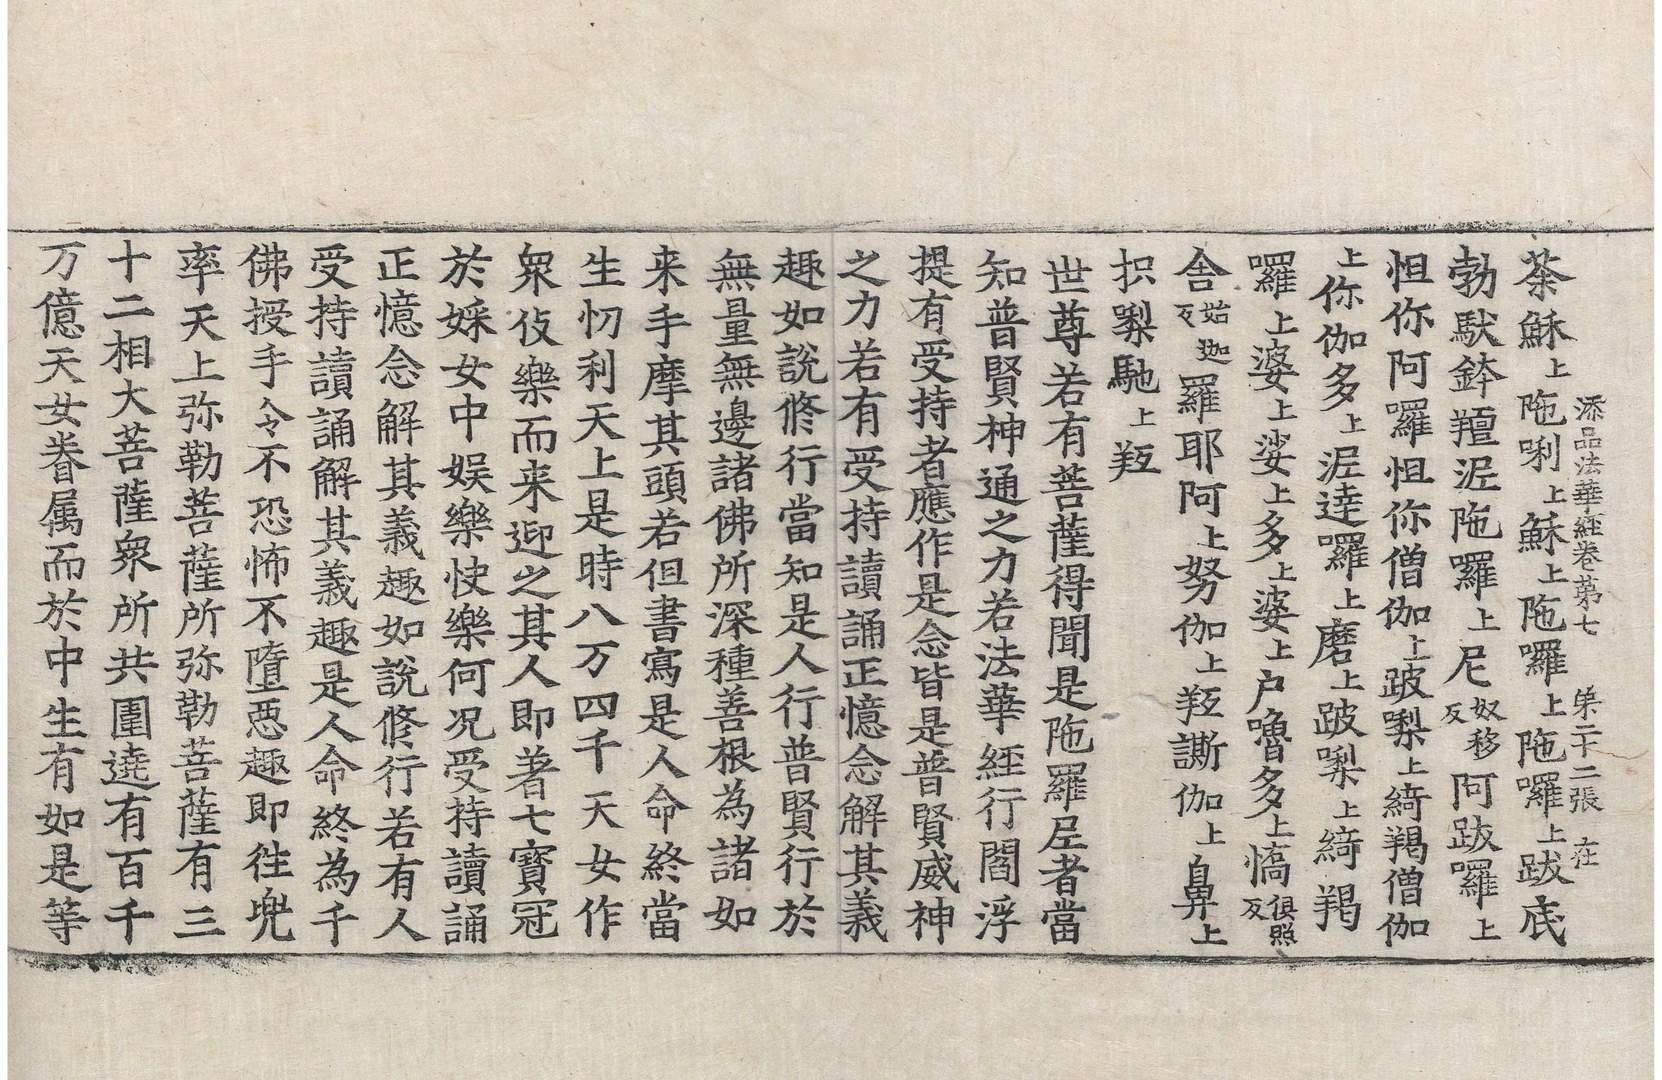 添品法華經卷第七 第二十二張 在
荼穌上陁唎上穌上陁囉上陁囉上跋底
勃馱鉢羶泥陁囉上尼奴移反阿跋囉上
怛你阿囉怛你僧伽上跛㗚上綺羯僧伽
上你伽多上泥達囉上磨上跛㗚上綺羯
囉上婆上娑上多上婆上户嚕多上憍俱照反
舍始迦反羅耶阿上努伽上䍧䛠伽上鼻上
抧㗚馳上䍧
世尊若有菩薩得聞是陁羅尼者當
知普賢神通之力若法華經行閻浮
提有受持者應作是念皆是普賢威神
之力若有受持讀誦正憶念解其義
趣如說修行當知是人行普賢行於
無量無邊諸佛所深種善根為諸如
来手摩其頭若但書寫是人命終當
生忉利天上是時八万四千天女作
衆伎樂而来迎之其人即著七寶冠
於婇女中娱樂快樂何况受持讀誦
正憶念解其義趣如說修行若有人
受持讀誦解其義趣是人命終為千
佛授手令不恐怖不墮惡趣即徃兜
率天上弥勒菩薩所弥勒菩薩有三
十二相大菩薩衆所共圍遶有百千
万億天女眷属而於中生有如是等